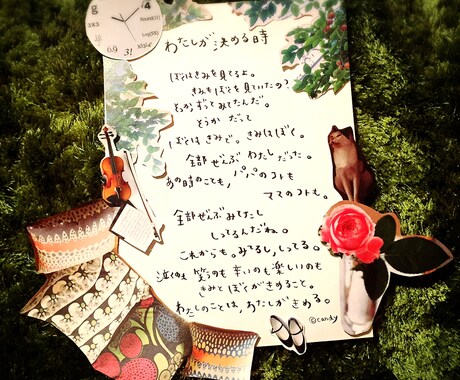 わたしが決める時
ぼくはきみを見てるよ。
きみもぼくを見ていたの？
そうかずってみてたんだ。
そうか だって
ぼくは きみで。きみはぼく。
全部 ぜんぶ わたし だった。
あの時のことも、パパのコトも
ママのコトも。
全部 ぜんぶ みてたし
しってるんだね。
これからも。みてるし、しってる。
泣くのも 笑うのも 辛いのも 楽しいのも
きみと ぼくがきめること。
わたしのことは、わたしがきめる。
©candy